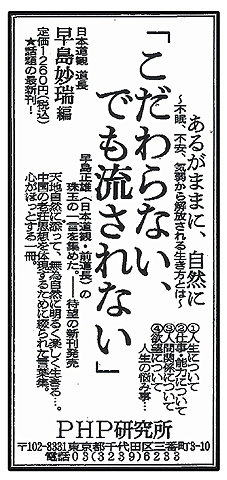 あるがままに、自然に
〜不眠、不安、気弱から解放される生き方とは〜
「こだわらない、
でも流されない」
①人生について
②仕事・能力について
③人間関係について
④欲望について
人生の悩み事…
早島正雄（日本道観・前道長）の
珠玉の一言を集めた。――待望の新刊発売
天地自然に添って、無為自然に明るく楽しく生きる…。
中国の老荘思想を体現するために綴られた言葉集。
心がほっとする一冊
日本道観 道長
早島妙瑞 編
定価1260円（税込）
★話題の最新刊！
PHP研究所
〒102-8331東京都千代田区三番町3-10
電話 03(3239)6233